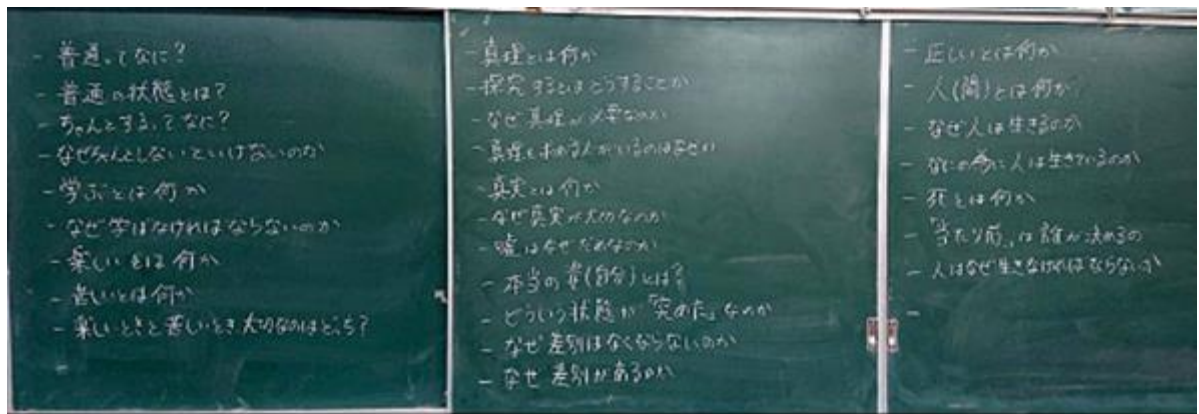 - 普通ってなに?
- 普通の状態とは?
- ちゃんとするってなに?
- なぜちゃんとしないといけないのか
- 学ぶとは何か
- なぜ学ばなければならないのか
- 楽しいとは何か
- 苦しいとは何か
- 楽しいときと苦しいとき大切なのはどっち?
- 真理とは何か
- 探究するとはどうすることか
- なぜ真理が必要なのか
- 真理を求める人がいるのはなぜか
- 真実とは何か
- なぜ真実が大切なのか
- 嘘はなぜだめなのか
- 本当の姿(自分)とは?
- どういう状態が「究めた」なのか
- なぜ差別はなくならないのか
- なぜ差別があるのか
- 正しいとは何か
- 人(間)とは何か
- なぜ人は生きるのか
- なにの為に人は生きているのか
- 死とは何か
- 「当たり前」は誰が決めるの
- 人はなぜ生きなければならないか
-